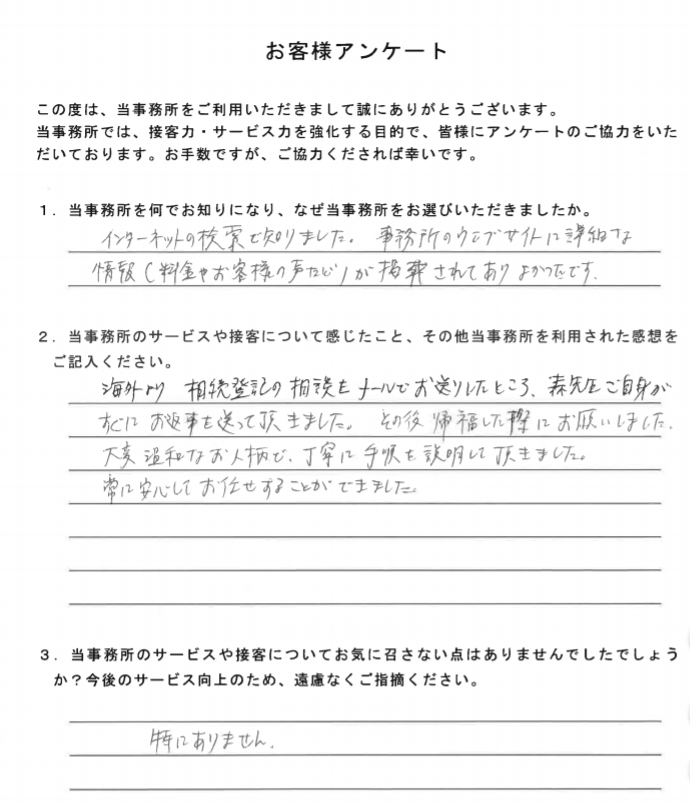 お客様アンケート
この度は、当事務所をご利用いただきまして誠にありがとうございます。
当事務所では、接客力・サービス力を強化する目的で、皆様にアンケートのご協力をいた
だいております。お手数ですが、ご協力くだされば幸いです。
１．当事務所を何でお知りになり、なぜ当事務所をお選びいただきましたか。
インターネットの検索で知りました。 事務所のウェブサイトに詳細な
情報（料金やお客様の声など）が掲載されてありよかったです.
２．当事務所のサービスや接客について感じたこと、その他当事務所を利用された感想を
ご記入ください。
海外より 相続登記の相談をメールでお送りしたところ、森先生ご自身が
すぐに お返事を送って頂きました。 その後 帰福した際にお願いしました.
大変 温和なお人柄で、丁寧に 手順を説明して頂きました。
常に安心してお任せすることができました。
３．当事務所のサービスや接客についてお気に召さない点はありませんでしたでしょう
か？今後のサービス向上のため、遠慮なくご指摘ください。
特にありません.